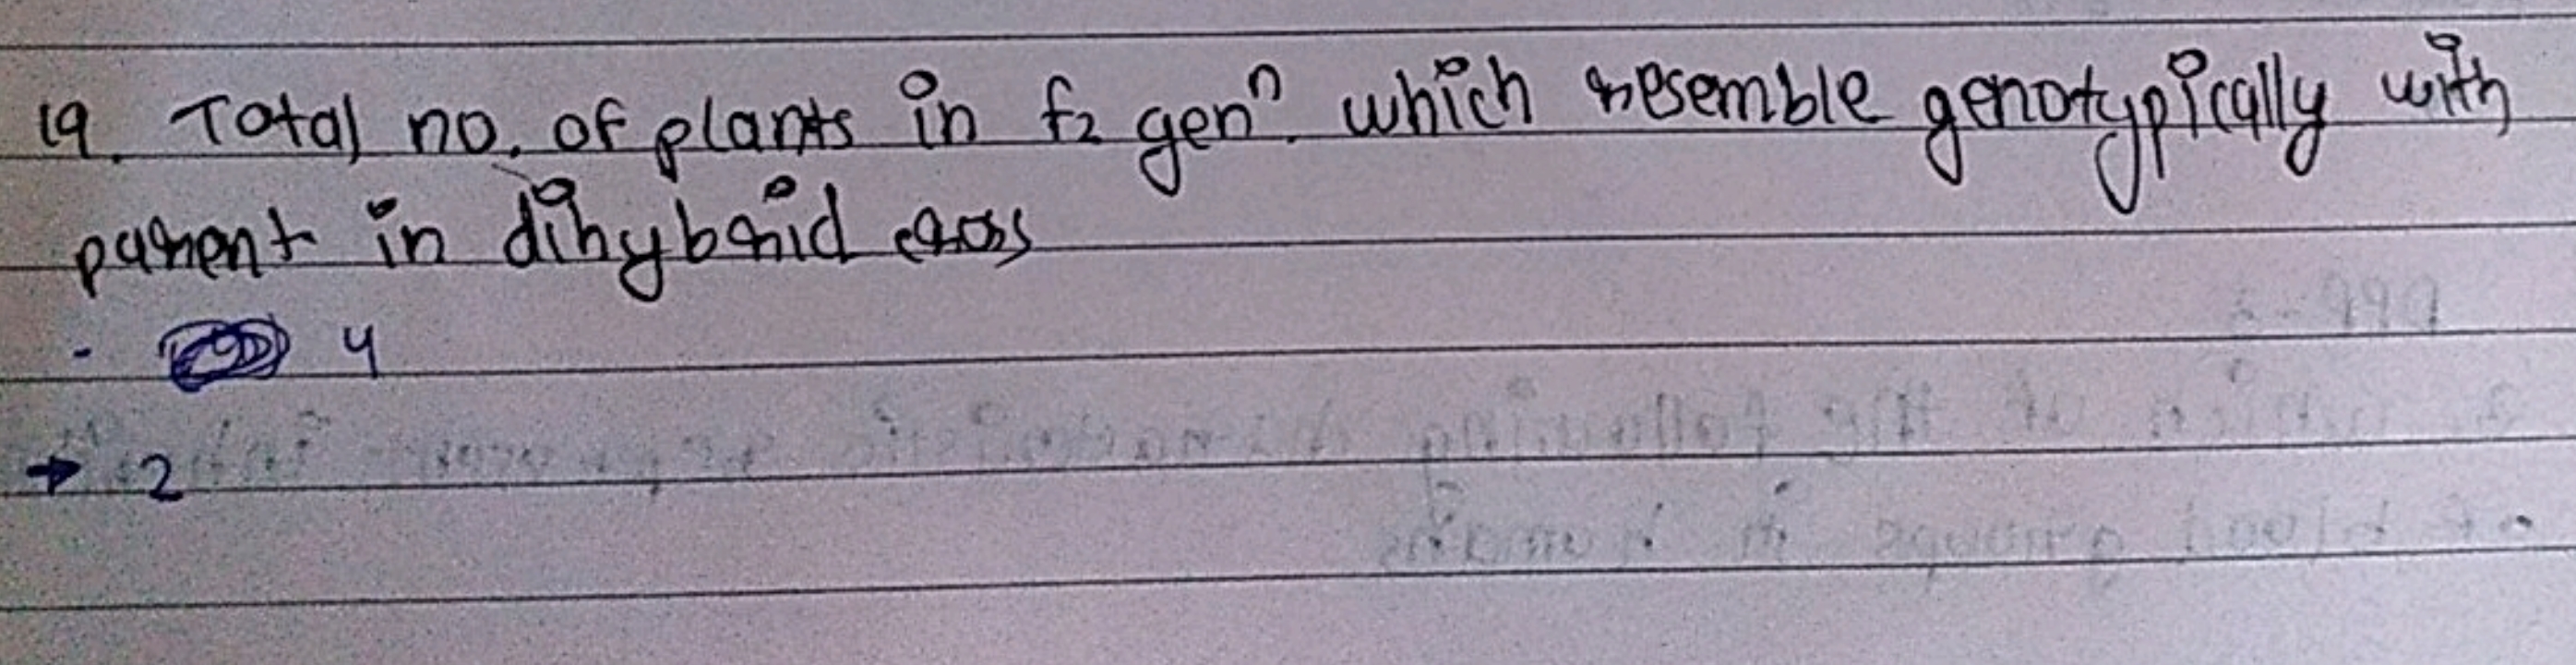 19. Total no. of plants in f2 genⁿ. which resemble genotypically with
parent in dihybrid cross
- 4
→ 2